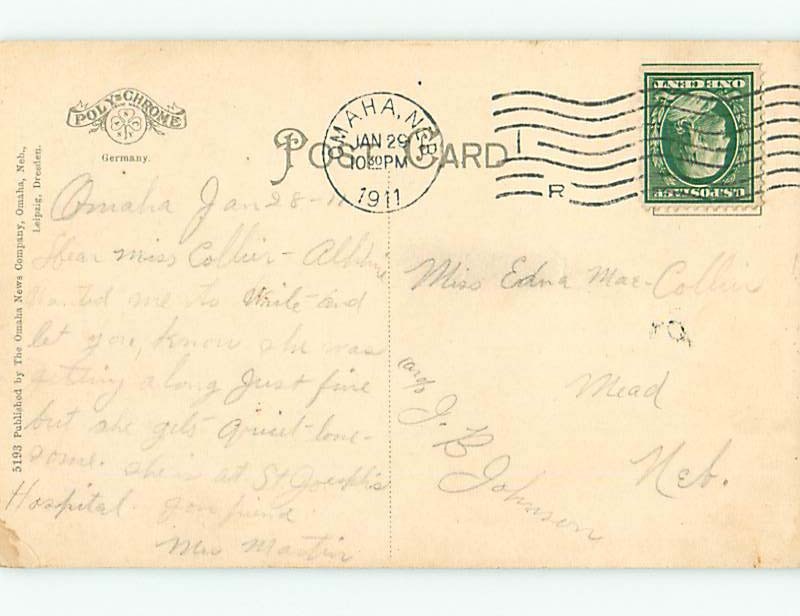 POLY-CHROME
Germany.
POST CARD
OMAHA, NEB.
JAN 29
10 30 PM
1911
R
ONE CENT
U.S. POSTAGE
5193 Published by The Omaha News Company, Omaha, Neb.,
Leipzig, Dresden.
Omaha Jan 28-11
Dear Miss Collier-
Wanted me to Write and
let you, know she was
getting along Just fine
but she gets quiet lone-
some. she is at St Joseph's
Hospital. your friend
Mrs Martin
Miss Edna Mae Collier
Mead
Neb.
care of
J. B. Johnson